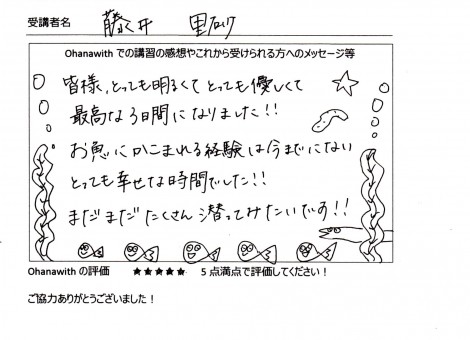 受講者名 藤井
Ohanawith での講習の感想やこれから受けられる方へのメッセージ等
皆様、とっても明るくてとっても優しくて
最高な3日間になりました!!
お魚にかこまれる経験は今までにない
とっても幸せな時間でした!!
まだまだたくさん潜ってみたいです!!
Ohanawith の評価 ★★★★★ 5 点満点で評価してください!
ご協力ありがとうございました!